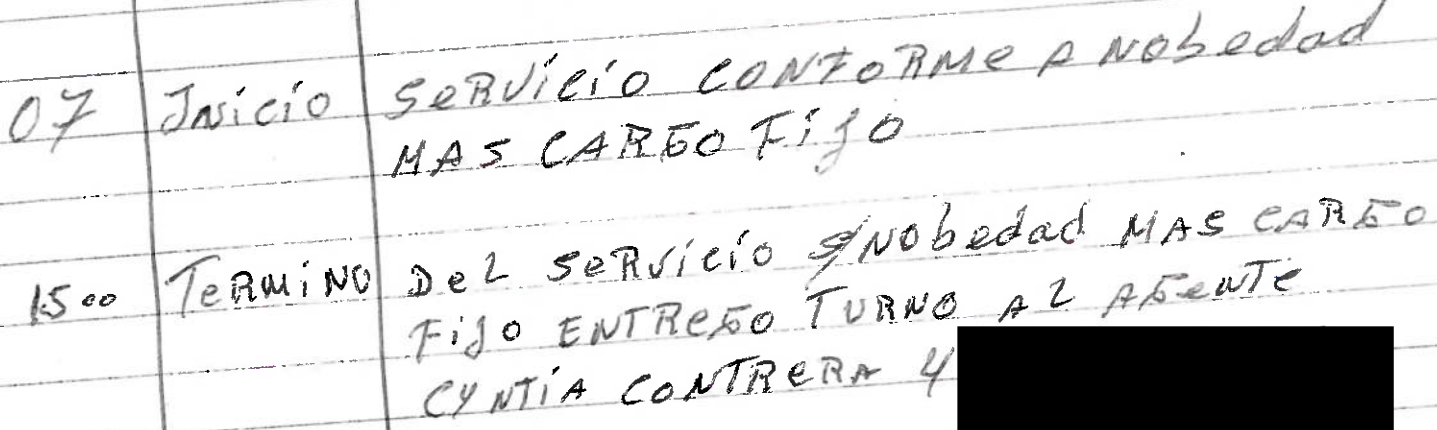 07 Inicio SeRVicio CONFORMe A Nobedad
MAS CARGO Fijo
15 00 TeRMiNO Del SeRVicio S/Nobedad MAS CARGO
Fijo ENTReGO TURNO Al AGeNTe
CYNTiA CONTReRA Y